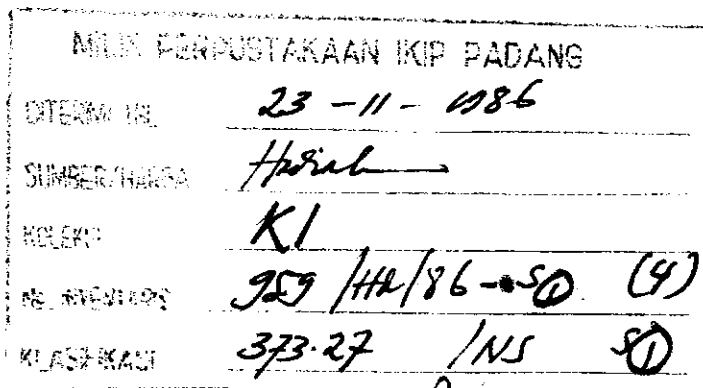 MILIK PERPUSTAKAAN IKIP PADANG
DITERIMA TGL. 23 - 11 - 1986
SUMBER/HARGA Hadiah
KOLEKSI KI
NO. INVENTARIS 959/HD/86 - S① (4)
KLASIFIKASI 373.27 /NS S①